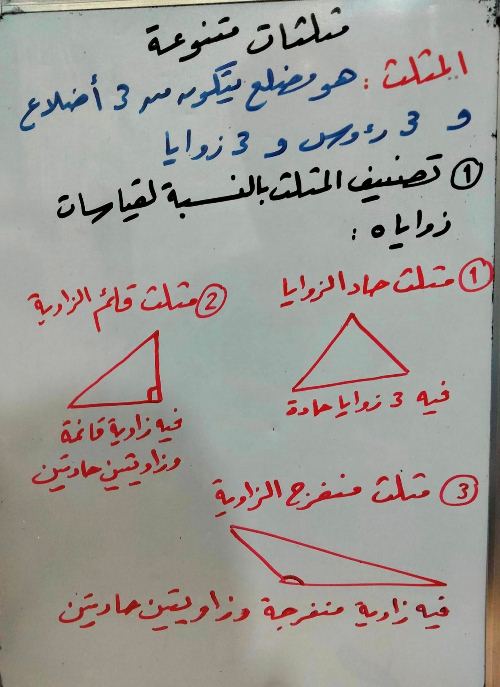 مثلثات متنوعة
المثلث : هو مضلع يتكون من 3 أضلاع
و 3 رءوس و 3 زوايا
① تصنيف المثلث بالنسبة لقياسات
زواياه :
① مثلث حاد الزوايا
فيه 3 زوايا حادة
② مثلث قائم الزاوية
فيه زاوية قائمة
وزاويتين حادتين
③ مثلث منفرج الزاوية
فيه زاوية منفرجة وزاويتين حادتين